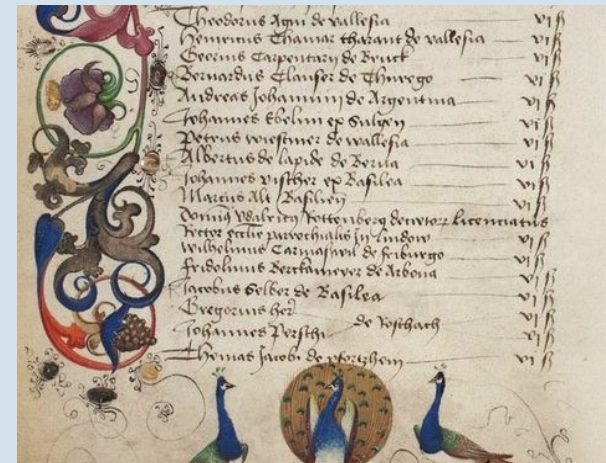 Theodorus Agni de vallesia vi ß
Henricus Thamar tharant de vallesia vi ß
Georius Carpentarij de Bruck vi ß
Bernardus Clauser de Thurego vi ß
Andreas Johannini de Argentina vi ß
Johannes Ebelini ex Sulgen vi ß
Petrus wiestiner de wallesia vi ß
Albertus de lapide de Berna vi ß
Johannes vischer ex Basilea vi ß
Marcus Alt Basilien vi ß
Dominus vdalricus Rottenberg decretorum licenciatus
Rector ecclie parrochialis In lindow vi ß
wilhelmus de friburgo vi ß
fridolinus Berckameyer de Arbona vi ß
Jacobus Gelber de Basilea vi ß
Gregorius her
de Roschach vi ß
Johannes Perschi vi ß
Thomas Jacobi de pfortzhem vi ß